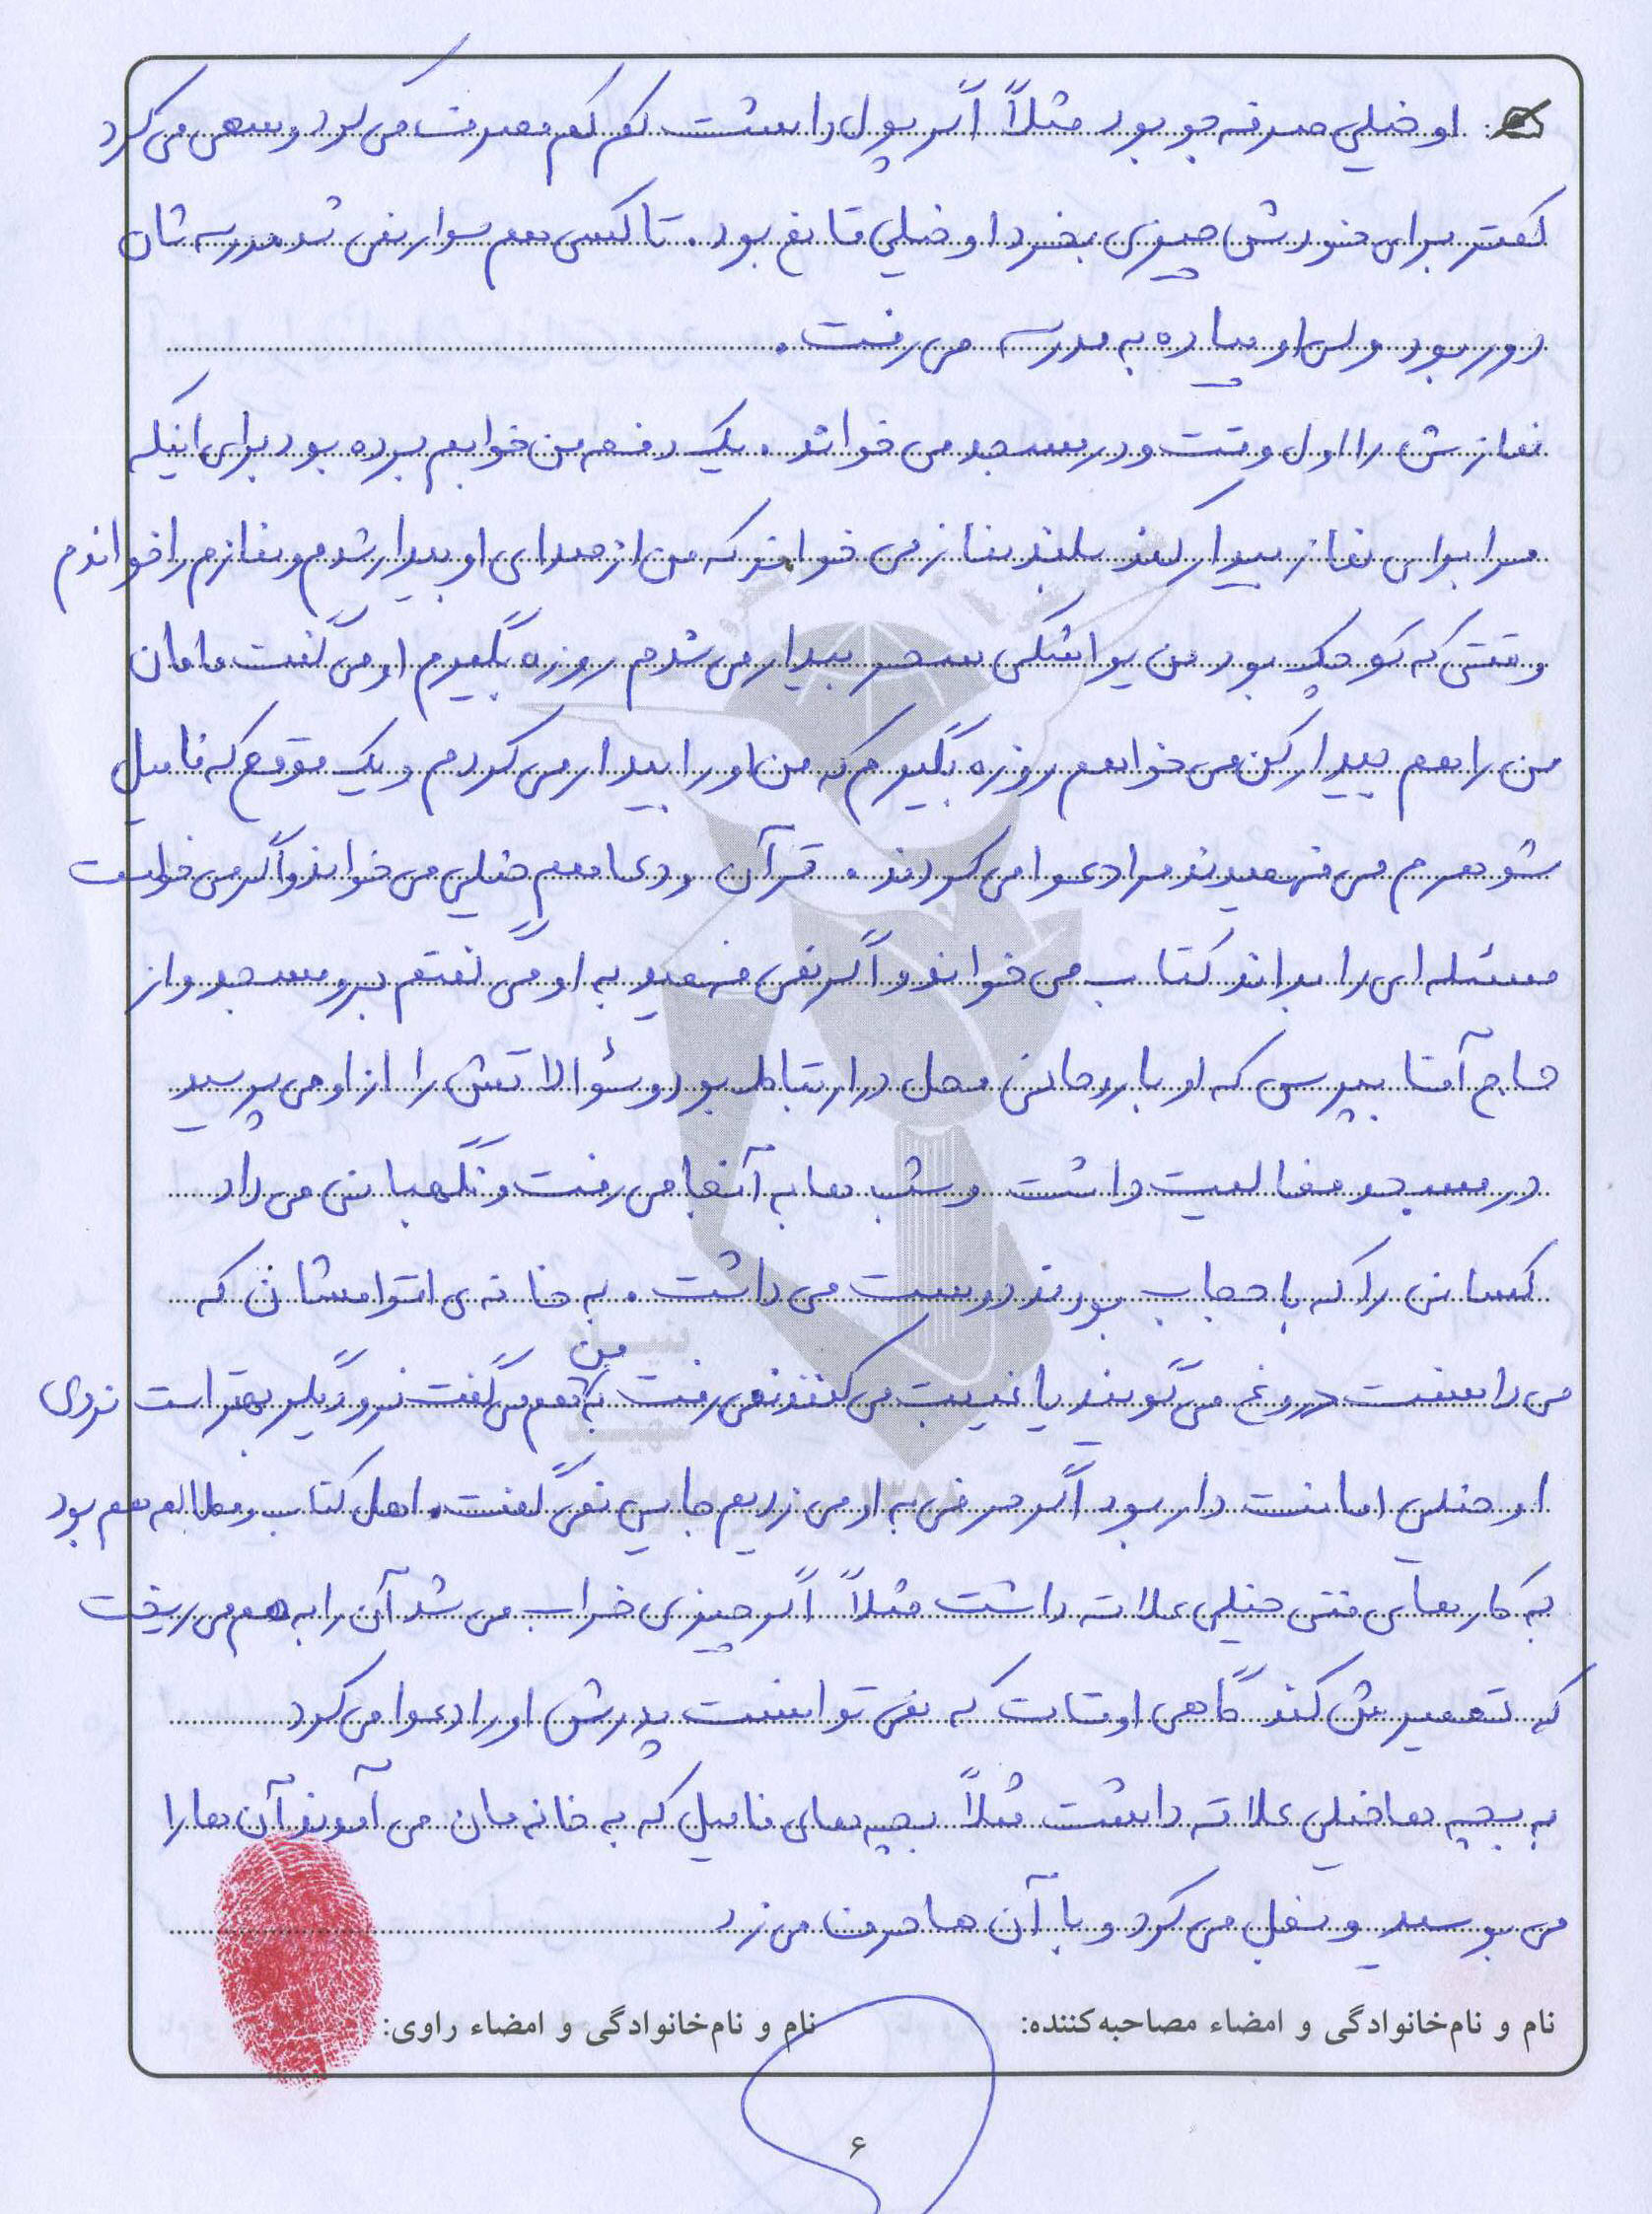 او خیلی صرفه جو بود مثلاً اگر پول داشت کم کم مصرف می کرد و سعی می کرد
کمتر برای خودش چیزی بخرد او خیلی قانع بود. تاکسی هم سوار نمی شد مدرسه شان
دور بود ولی او پیاده به مدرسه می رفت.
نمازش را اول وقت و در مسجد می خواند. یک دفعه من خوابم برده بود برای اینکه
مرا برای نماز بیدار کند بلند نماز می خواند که من از صدای او بیدار شدم و نمازم را خواندم
وقتی که کوچک بود من یواشکی سحر بیدار می شدم روزه بگیرم او می گفت مامان
من را هم بیدار کن می خواهم روزه بگیرم که من او را بیدار می کردم و یک موقع که فامیل
شوهرم می فهمیدند مرا دعوا می کردند. قرآن و دعا هم خیلی می خواند و اگر می خواست
مسئله ای را بداند کتاب می خواند و اگر نمی فهمید به او می گفتم برو مسجد و از
حاج آقا بپرس که او با روحانی محل در ارتباط بود و سؤالاتش را از او می پرسید
در مسجد فعالیت داشت و شب ها به آنجا می رفت و نگهبانی می داد
کسانی را که با حجاب بودند دوست می داشت. به خانه ی اقوامشان که
می دانست دروغ می گویند یا غیبت می کنند نمی رفت به من هم می گفت نرو دیگر بهتر است نروی
او خیلی امانت دار بود اگر حرفی به او می زدیم جایی نمی گفت. اهل کتاب و مطالعه هم بود
به کارهای فنی خیلی علاقه داشت مثلاً اگر چیزی خراب می شد آن را به هم می ریخت
که تعمیرش کند گاهی اوقات که نمی توانست پدرش او را دعوا می کرد
به بچه ها خیلی علاقه داشت مثلاً بچه های فامیل که به خانه مان می آمدند آن ها را
می بوسید و بغل می کرد و با آن ها حرف می زد
نام و نام‌خانوادگی و امضاء مصاحبه‌کننده: نام و نام‌خانوادگی و امضاء راوی:
۶